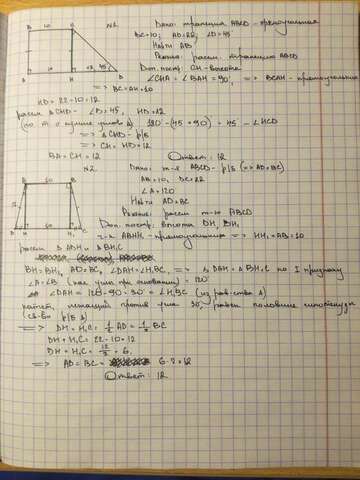 10
N1.
Дано: трапеция ABCD - прямоугольная
BC=10; AD=22, ∠D=45
Найти AB
Решение: рассм. трапецию ABCD
Доп. постр. CH - высота
∠CHA = ∠BAH = 90, => BCAH - прямоугольник
=> BC = AH = 10
HD = 22-10 = 12
рассм △CHD - ∠D=45, HD=12
(по т. о сумме углов △) 180-(45+90) = 45 - ∠HCD
=> △CHD - р/б
=> CH = HD = 12
BA = CH = 12
Ответ: 12
N2.
Дано: т-я ABCD - р/б (=> AD=BC)
AB=10, DC=22
∠A=120
Найти AD=BC
Решение: рассм т-ю ABCD
Доп. постр: высота DH, BH₁
ABHH₁ - прямоугольник => HH₁=AB=10
рассм △ADH и △BH₁C
BH=BH₁, AD=BC, ∠DAH=∠H₁BC, => △DAH=△BH₁C по I признаку
∠A=∠B (как углы при основании) = 120
∠DAH = 120-90 = 30 = ∠H₁BC (из рав-ства △)
катет, лежащий против угла 30, равен половине гипотенузы
(св-во р/б △)
=> DH = H₁C = 1/2 AD = 1/2 BC
DH + H₁C = 22-10 = 12
DH = H₁C = 12/2 = 6
=> AD = BC = 6·2 = 12
Ответ: 12